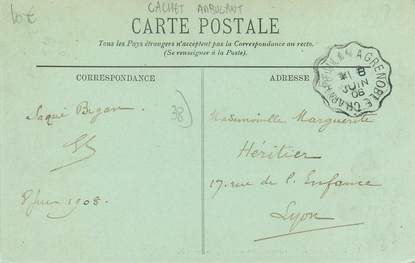 10€
CACHET AMBULANT
CARTE POSTALE
Tous les Pays étrangers n'acceptent pas la Correspondance au recto.
(Se renseigner à la Poste).
CORRESPONDANCE
ADRESSE
A GRENOBLE
8
JUIN
08
38
Mademoiselle Marguerite
Héritier
17, rue de l'Enfance
Lyon
8 juin 1908.